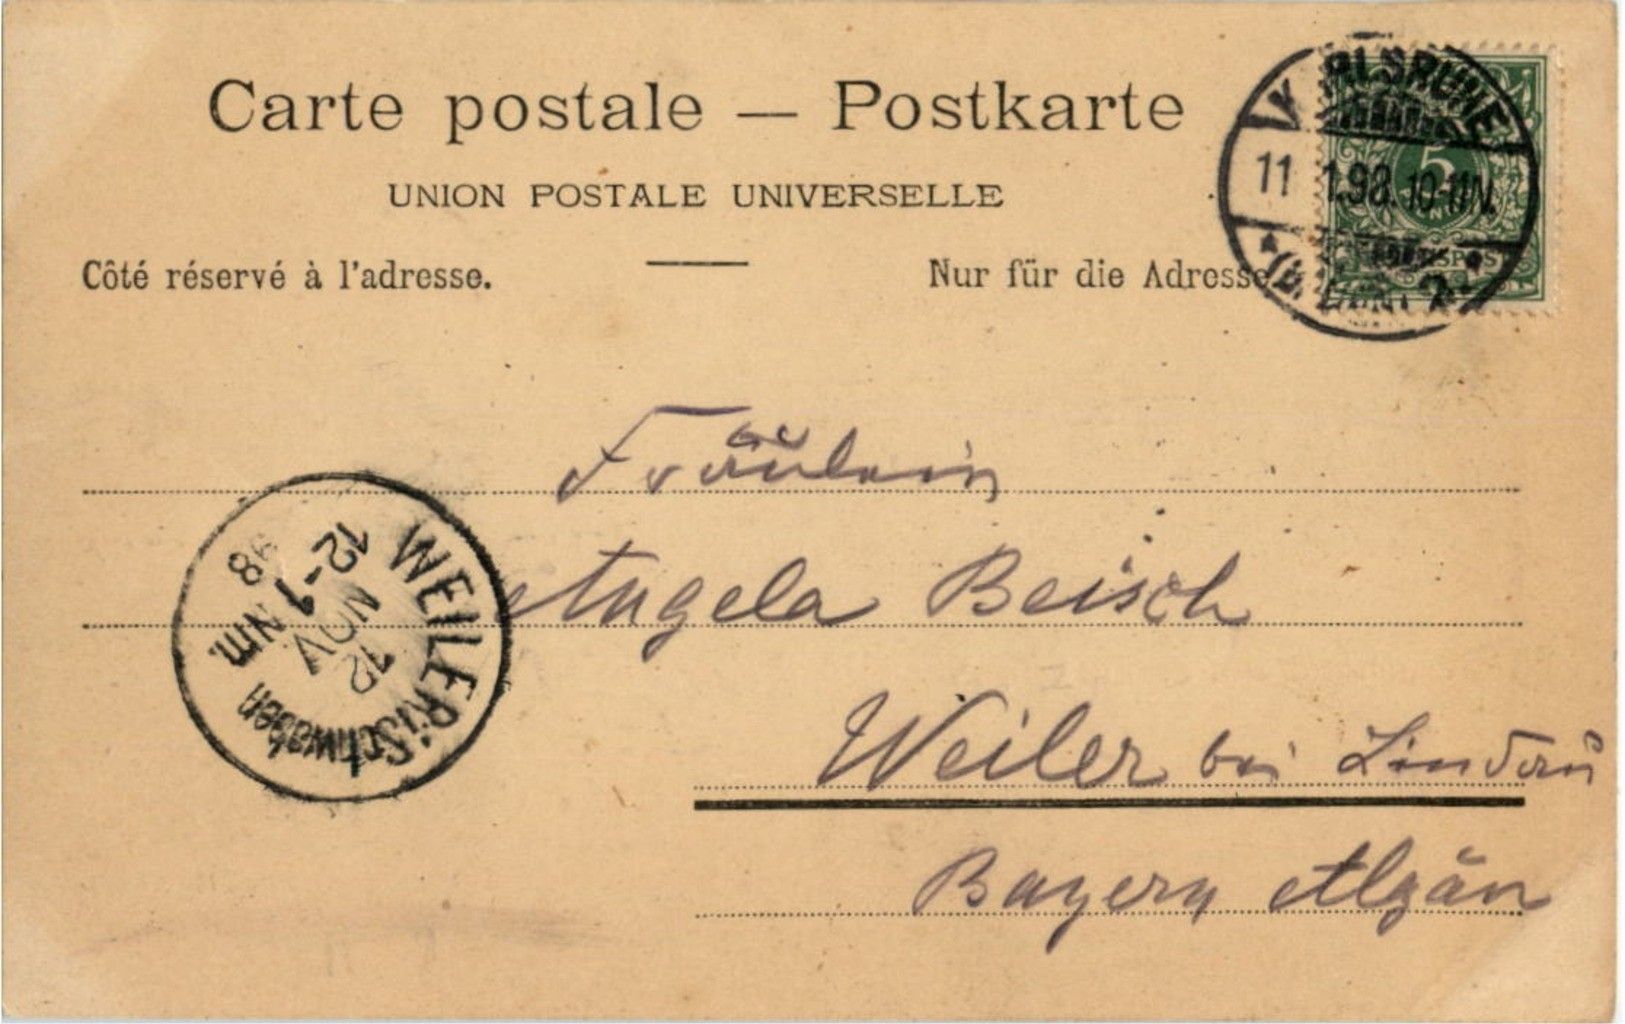 Carte postale — Postkarte
UNION POSTALE UNIVERSELLE
Côté réservé à l'adresse.
Nur für die Adresse
KARLSRUHE
11 11.98. 10-11N.
5
REICHSPOST
2.
Fräulein
Angela Beisch
Weiler bei Lindau
Bayern Algäu
WEILER i. Schwaben
12 NOV 98
12-1 Nm.